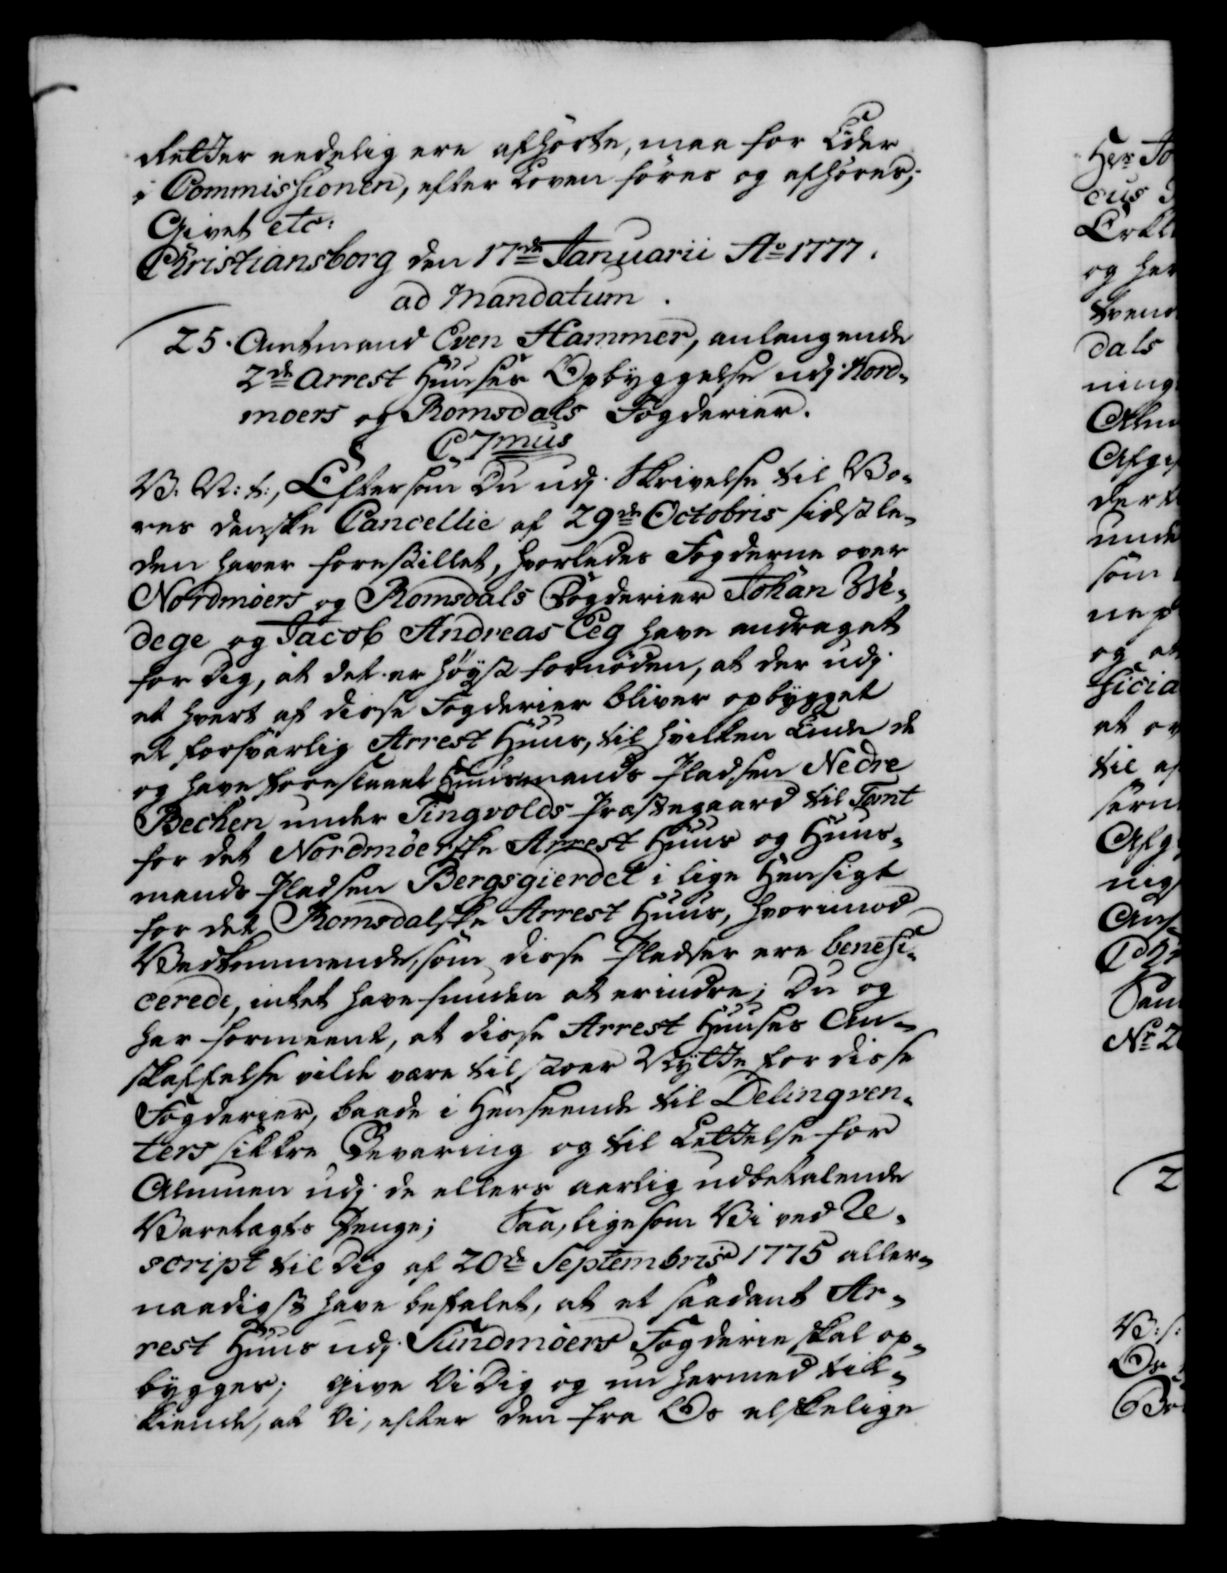 Retter eedelig ere afhørte, maa for Eder
i Commissionen, efter Loven føres og afhøres;
Givet etc:
Christiansborg den 17de Januarii Ao 1777.
ad Mandatum.
25. Amtmand Even Hammer, anlangende
2de Arrest Huuses Opbyggelse udj Nord-
moers og Romsdals Fogderier.
C. 7mus
V. V: t:, Eftersom Du udj Skrivelse til Vo-
res danske Cancellie af 29de Octobris sidstle-
den haver forestillet, hvorledes Fogderne over
Nordmøers og Romsdals Fogderier Johan We-
dege og Jacob Andreas Eeg have andraget
for Dig, at det er høyst fornøden, at der udj
et hvert af disse Fogderier bliver opbygget
et forsvarlig Arrest Huus, til hvilken Ende de
og have foreslaaet Huusmands Pladsen Nedre
Bechen under Tingvolds Præstegaard til Tomt
for det Nordmøerske Arrest Huus og Huus-
mands Pladsen Bergsgierdet i lige Hensigt
for det Romsdalske Arrest Huus, hvorimod
Vedkommende, som disse Pladser ere benefi-
cerede, intet have funden at erindre; Du og
har formeent, at disse Arrest Huuses An-
skaffelse vilde være til stoer Nytte for disse
Fogderier, baade i Henseende til Delinqven-
ters sikkre Bevaring og til Lettelse for
Almuen udj de ellers aarlig udbetalende
Varetægts Penge; Saa, ligesom Vi ved Re-
script til Dig af 20de Septembris 1775 aller-
naadigst have befalet, at et saadant Ar-
rest Huus udj Sundmøers Fogderie skal op-
bygges; give Vi Dig og nu hermed til-
kiende, at Vi, efter den fra Os elskelige